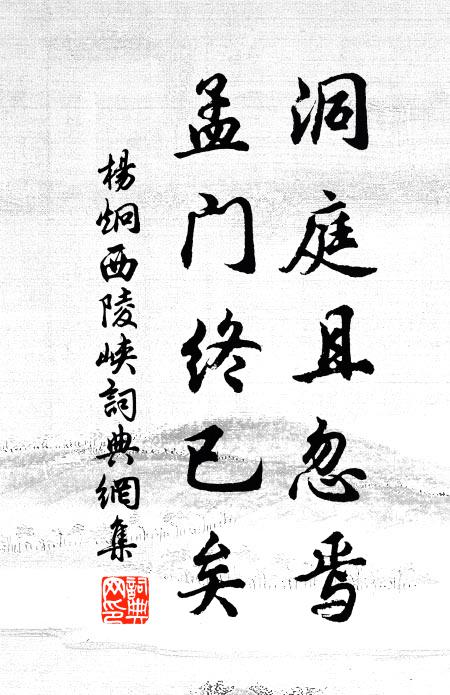 洞庭且忽焉
孟门终已矣
楊炯西陵峽詞典網集
詞典网印